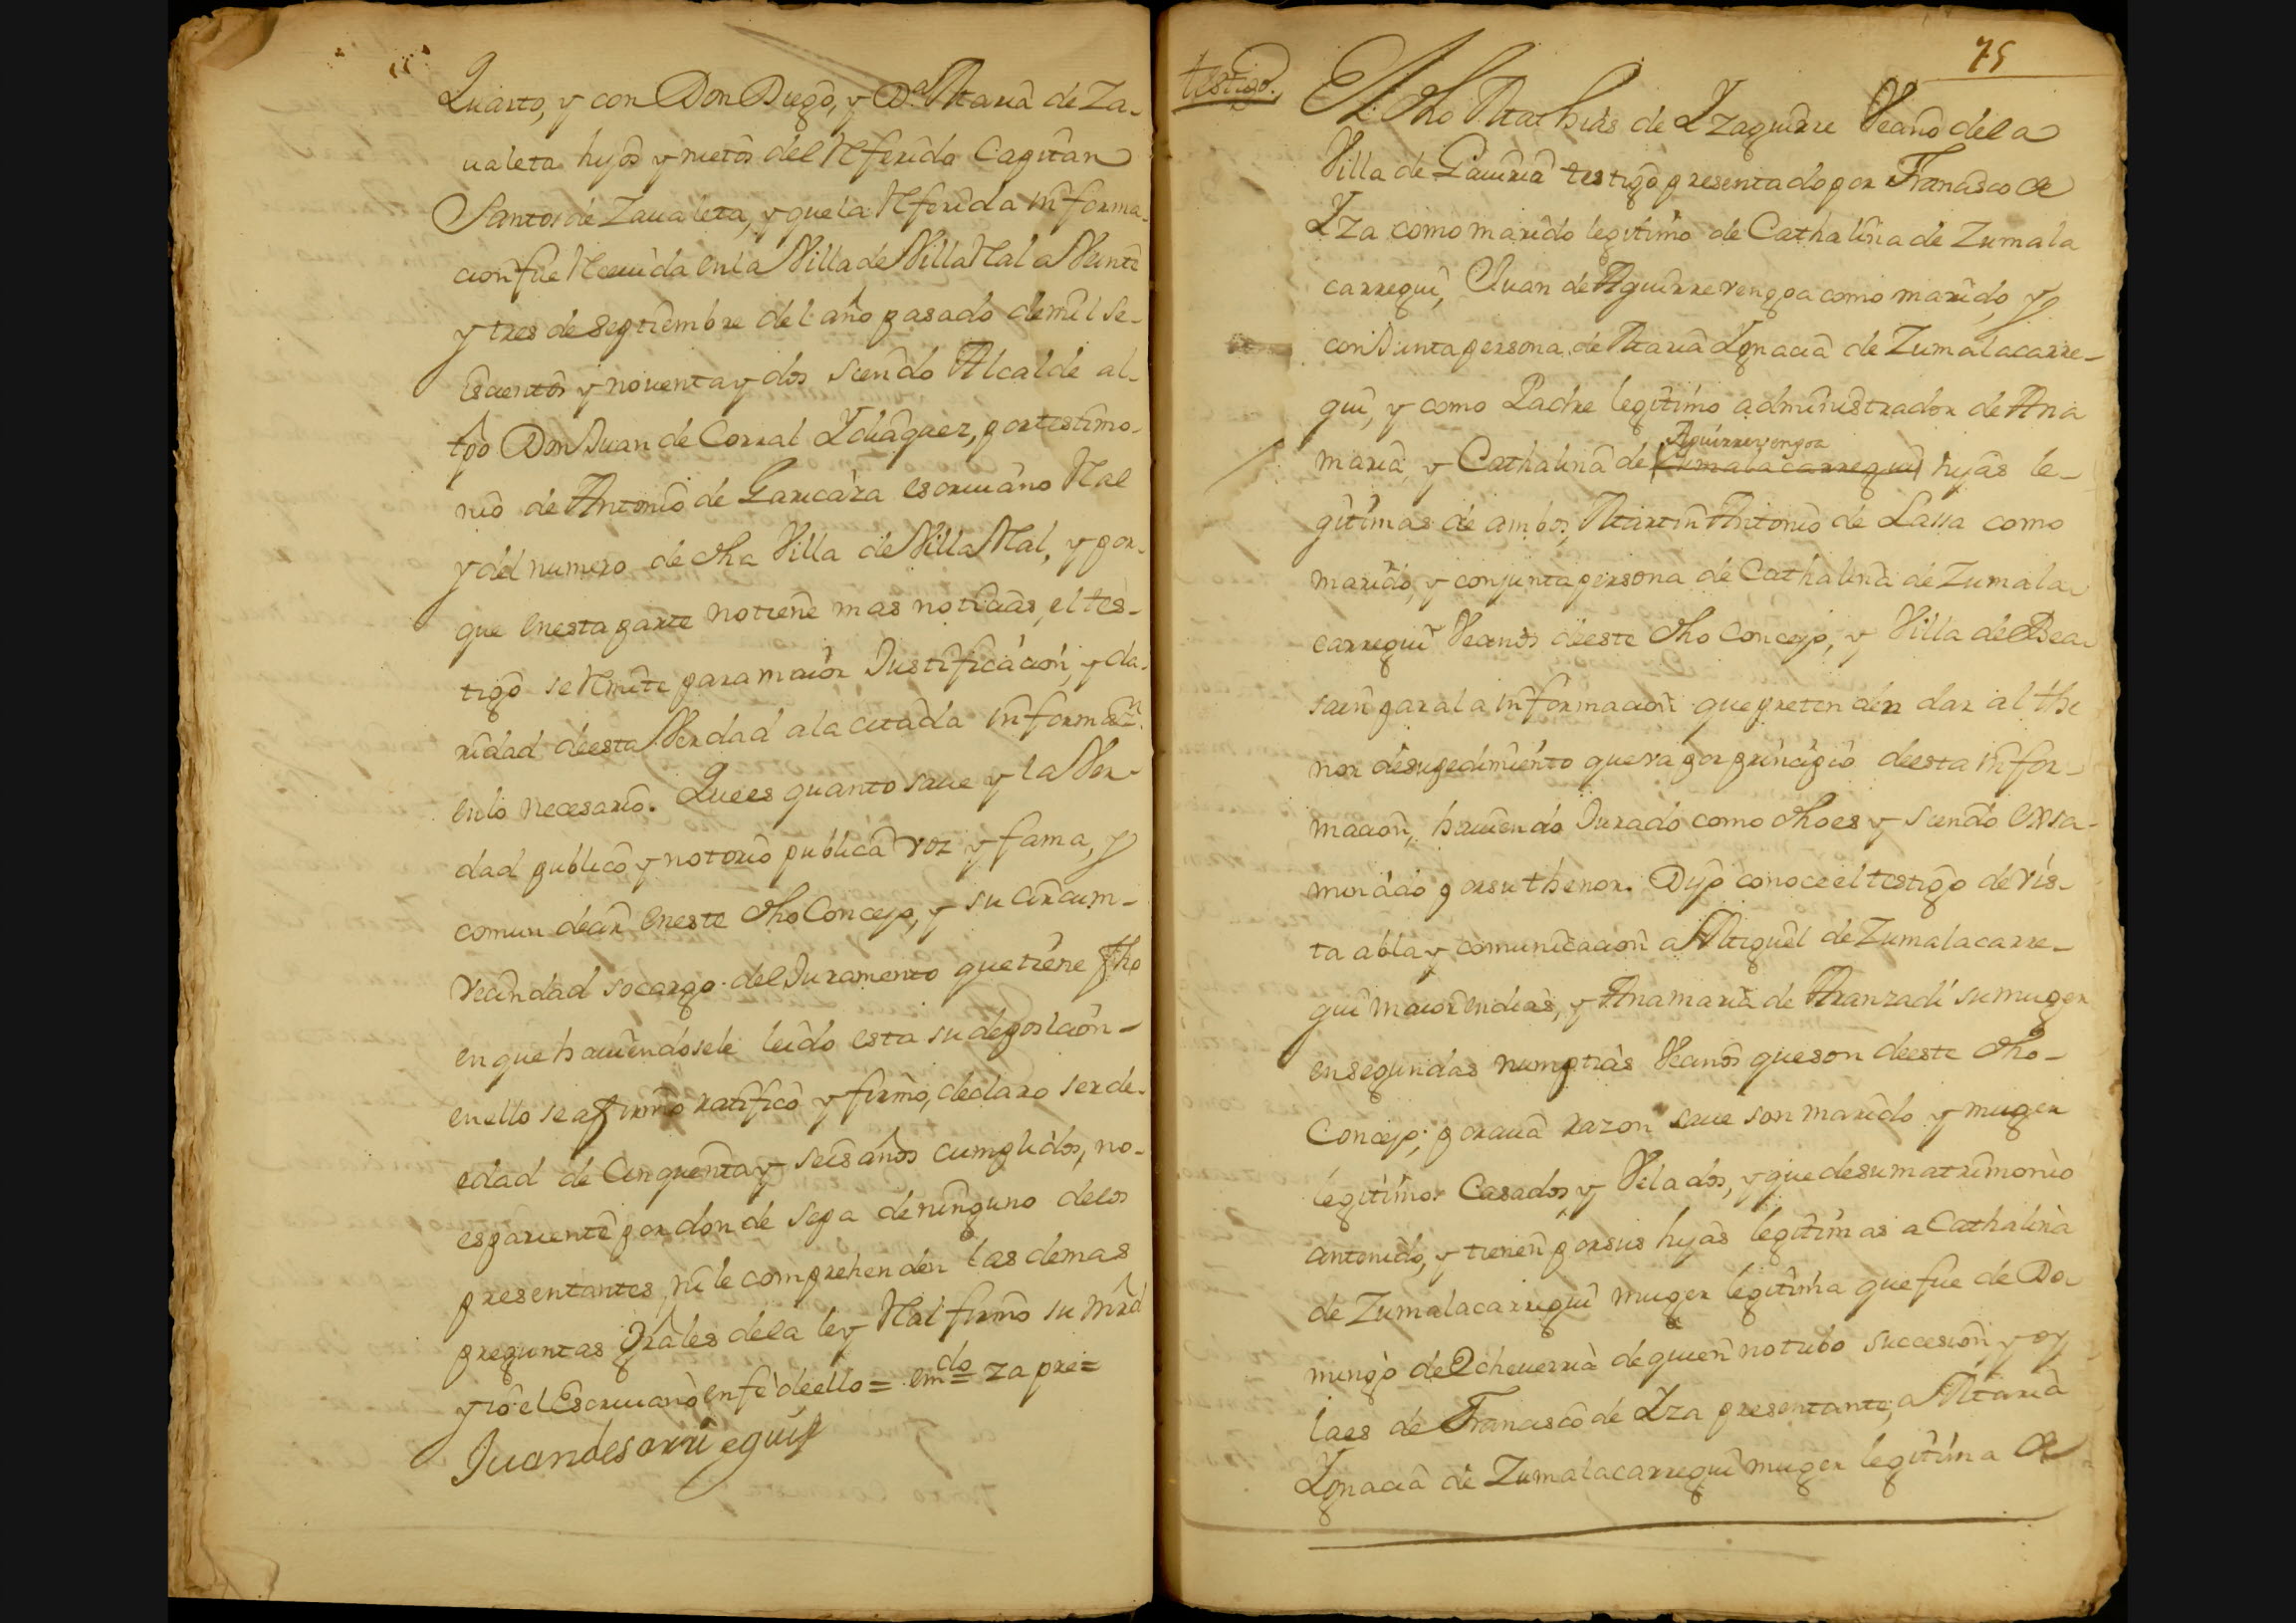 Quarto, y con Don Diego, y Dª Maria de Za-
ualeta hijos y nietos del Referido Capitan
Santos de Zaualeta, y que la Referida informa-
cion fue Receuida en la Villa de Villa Real a Veinte
y tres de septiembre del año pasado de mil se-
iscientos y nouenta y dos siendo Alcalde al-
tpo Don Juan de Corral Ydiaquez, por testimo-
nio de Antonio de Garicaza escriuano Real
y del numero de dha Villa de Villa Real, y por-
que en esta parte no tiene mas noticias, el tes-
tigo se Remite para maior Justificacion, y cla-
ridad de esta Verdad a la citada informon
en lo necesario. Que es quanto saue y la Ver-
dad publico y notorio publica voz y fama, y
comun decir en este dho Concejo, y su circum-
vecindad so cargo del Juramento que tiene fho
en que hauiendosele leido esta su deposicion-
en ello se afirmo ratifico y firmo, declaro ser de-
edad de Cinquenta y seis años cumplidos, no-
es pariente por donde sepa de ninguno de los
presentantes, ni le comprehenden las demas
preguntas Grales de la ley Real firmo su mrd
y io el Escriuano en fe de ello = emdo = za pre=
Juan de sarriegui
75
testigo.
El dho Mathias de Yzaguirre Vecino de la
Villa de Gauiria testigo presentado por Francisco de
Yza como marido legitimo de Cathalina de Zumala
carregui, Juan de Aguirrevengoa como marido, y
conjunta persona de Maria Ygnacia de Zumalacarre-
gui, y como Padre legitimo administrador de Ana
Aguirrevengoa
maria y Cathalina de Zumalacarregui hijas le-
gitimas de ambos, Martin Antonio de Lasa como
marido, y conjunta persona de Cathalina de Zumala-
carregui Vecinos de este dho Concejo, y Villa de Bea-
sain para la informacion que pretenden dar al the
nor de su pedimiento que va por principio de esta infor-
macion, hauiendo Jurado como dho es y siendo exsa-
minado por su thenor. Dijo conoce el testigo de vis-
ta abla y comunicacion a Miguel de Zumalacarre-
gui maior en dias, y Ana maria de Aranzadi su muger
en segundas numptias Vecinos que son de este dho-
Concejo; por cuia razon saue son marido y muger
legitimos Casados y Velados, y que de su matrimonio
an tenido, y tienen por sus hijas legitimas a Cathalina
de Zumalacarregui muger legitima que fue de Do-
mingo de Echeuerria de quien no tubo succesion y oy
la es de Francisco de Yza presentante, a Maria
Ygnacia de Zumalacarregui muger legitima de